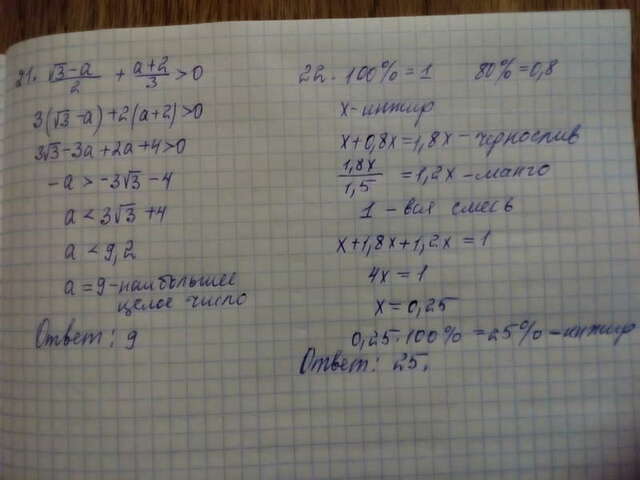 21. (√3-a)/2 + (a+2)/3 > 0
3(√3-a)+2(a+2)>0
3√3-3a+2a+4>0
-a > -3√3-4
a < 3√3+4
a < 9,2
a = 9 - наибольшее
целое число
Ответ: 9
22. 100% = 1 80% = 0,8
x - инжир
x+0,8x = 1,8x - чернослив
1,8x/1,5 = 1,2x - манго
1 - вся смесь
x+1,8x+1,2x = 1
4x = 1
x = 0,25
0,25·100% = 25% - инжир
Ответ: 25.